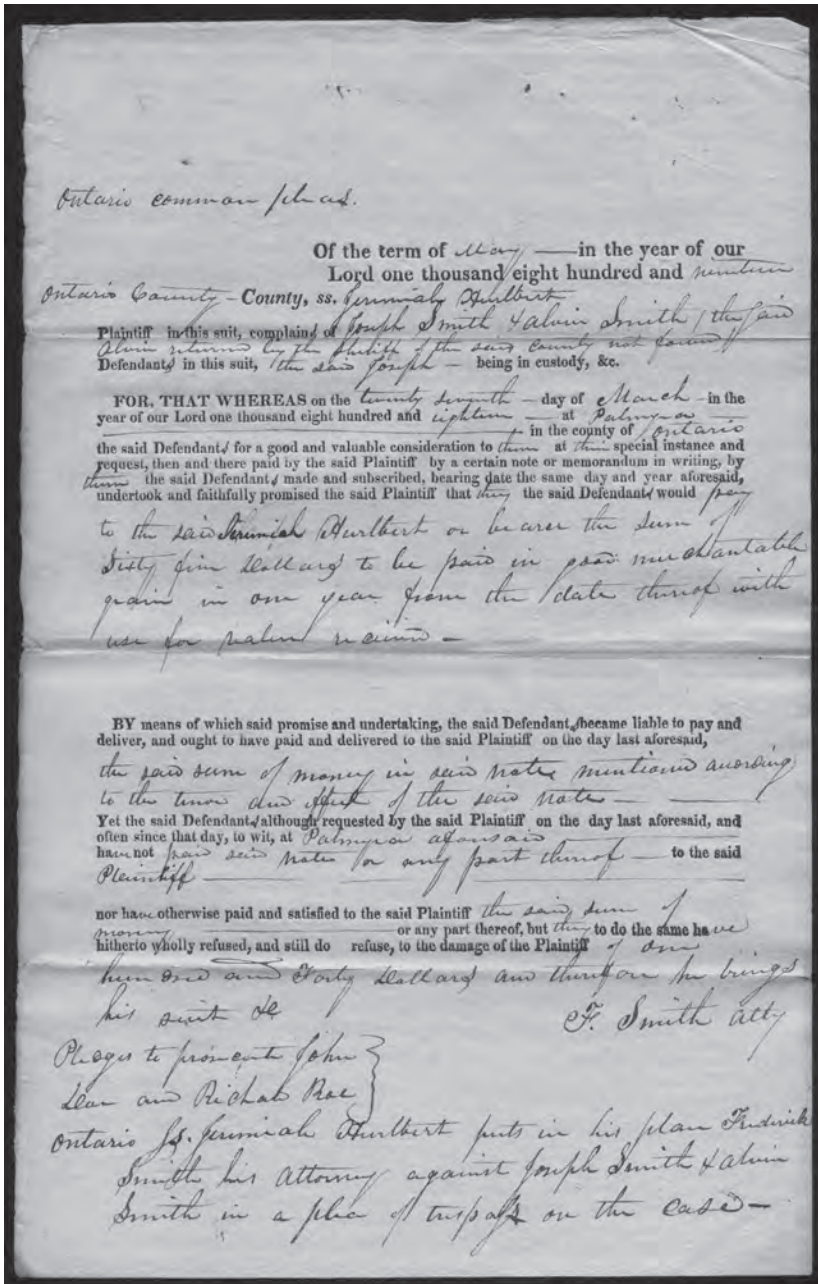 Ontario common pleas.
Of the term of May — in the year of our
Lord one thousand eight hundred and nineteen
Ontario County – County, ss. Jeremiah Hurlbert
Plaintiff in this suit, complains of Joseph Smith & alvin Smith (the said
Alvin returned by the Sheriff of the said county not found)
Defendants in this suit, the said Joseph — being in custody, &c.
FOR, THAT WHEREAS on the twenty seventh — day of March — in the
year of our Lord one thousand eight hundred and eighteen — at Palmyra —
— in the county of Ontario
the said Defendants for a good and valuable consideration to them at their special instance and
request, then and there paid by the said Plaintiff by a certain note or memorandum in writing, by
them the said Defendants made and subscribed, bearing date the same day and year aforesaid,
undertook and faithfully promised the said Plaintiff that they the said Defendants would pay
to the said Jeremiah Hurlbert or bearer the sum of
Sixty five Dollars to be paid in good merchantable
grain in one year from the date thereof with
use for value received —
BY means of which said promise and undertaking, the said Defendants became liable to pay and
deliver, and ought to have paid and delivered to the said Plaintiff on the day last aforesaid,
the said sum of money in said note mentioned according
to the tenor and effect of the said note — —
Yet the said Defendants although requested by the said Plaintiff on the day last aforesaid, and
often since that day, to wit, at Palmyra aforesaid
have not paid said note or any part thereof — to the said
Plaintiff —
nor have otherwise paid and satisfied to the said Plaintiff the said sum of
money — or any part thereof, but they to do the same have
hitherto wholly refused, and still do refuse, to the damage of the Plaintiff of one
hundred and Forty Dollars and therefore he brings
his suit &c
F. Smith atty
Pledges to prosecute John
Doe and Richard Roe
Ontario Ss. Jeremiah Hurlbert puts in his place Frederick
Smith his Attorney against Joseph Smith & alvin
Smith in a plea of trespass on the case —